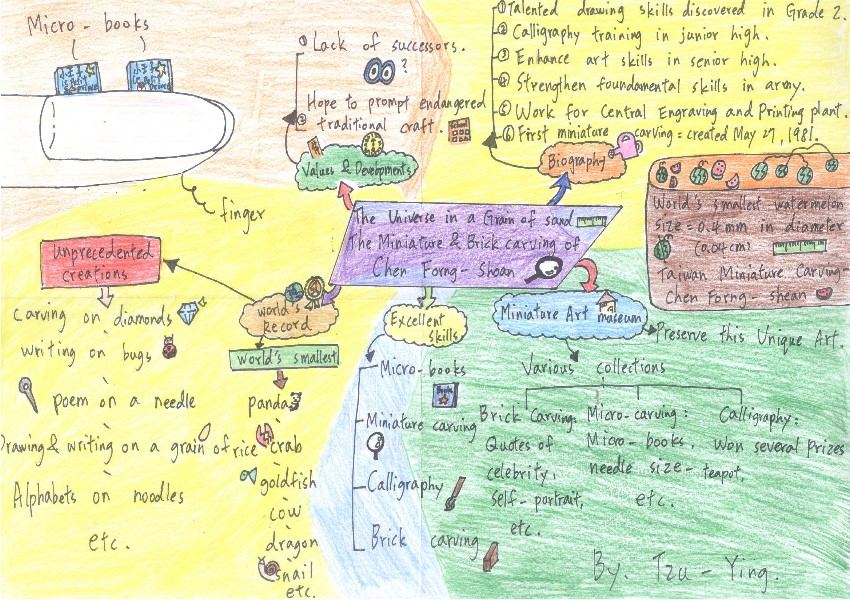 Micro-books
finger
① Lack of successors.
?
② Hope to prompt endangered
traditional craft.
School
Values & Developments
① Talented drawing skills discovered in Grade 2.
② Calligraphy training in junior high.
③ Enhance art skills in senior high.
④ Strengthen foundamental skills in army.
⑤ Work for Central Engraving and Printing plant.
⑥ First miniature carving = created May 27, 1981.
Biography
World's smallest watermelon
size = 0.4 mm in diameter
(0.04cm)
Taiwan Miniature Carving-
Chen Forng-shean
The Universe in a Grain of sand
The Miniature & Brick carving of
Chen Forng-Shoan
unprecedented
creations
Carving on diamonds
writing on bugs
poem on a needle
Drawing & writing on a grain of rice
Alphabets on noodles
etc.
world's
Record
world's smallest
panda
crab
goldfish
cow
dragon
snail
etc.
Excellent
Skills
Micro-books
Miniature carving
Calligraphy
Brick carving
Miniature Art museum
Preserve this Unique Art.
Various collections
Brick Carving:
Quotes of
celebrity,
self-portrait,
etc.
Micro-carving:
Micro-books,
needle size-teapot,
etc.
Calligraphy:
Won several prizes
By. Tzu-Ying.